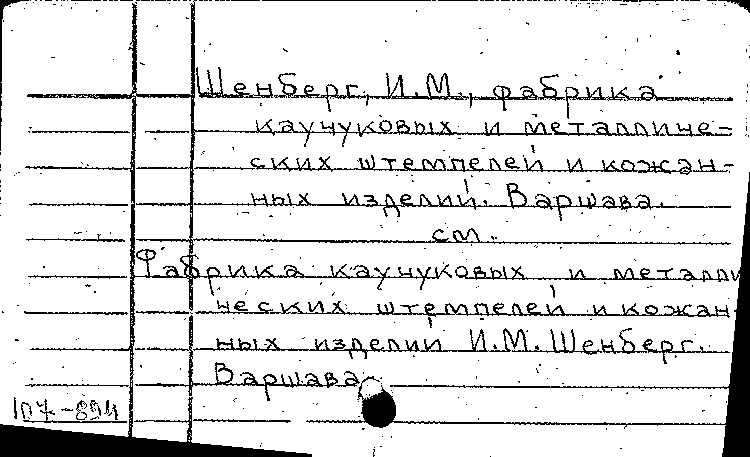 Шенберг, И.М., фабрика
каучуковых и металличе-
ских штемпелей и кожан-
ных изделий. Варшава.
см.
Фабрика каучуковых и металли
ческих штемпелей и кожан
ных изделий И.М. Шенберг.
Варшава.
107-894